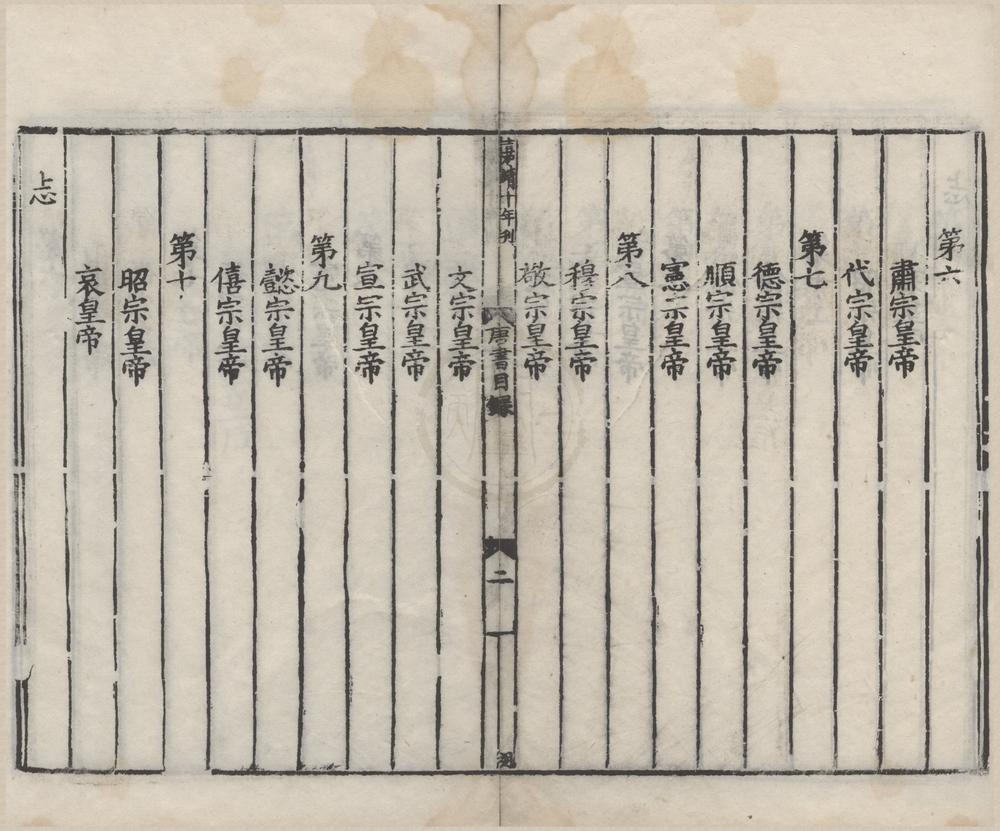 第六
肅宗皇帝
代宗皇帝
第七
德宗皇帝
順宗皇帝
憲宗皇帝
第八
穆宗皇帝
敬宗皇帝
十年刊
唐書目錄
二
文宗皇帝
武宗皇帝
宣宗皇帝
第九
懿宗皇帝
僖宗皇帝
第十
昭宗皇帝
哀皇帝
志